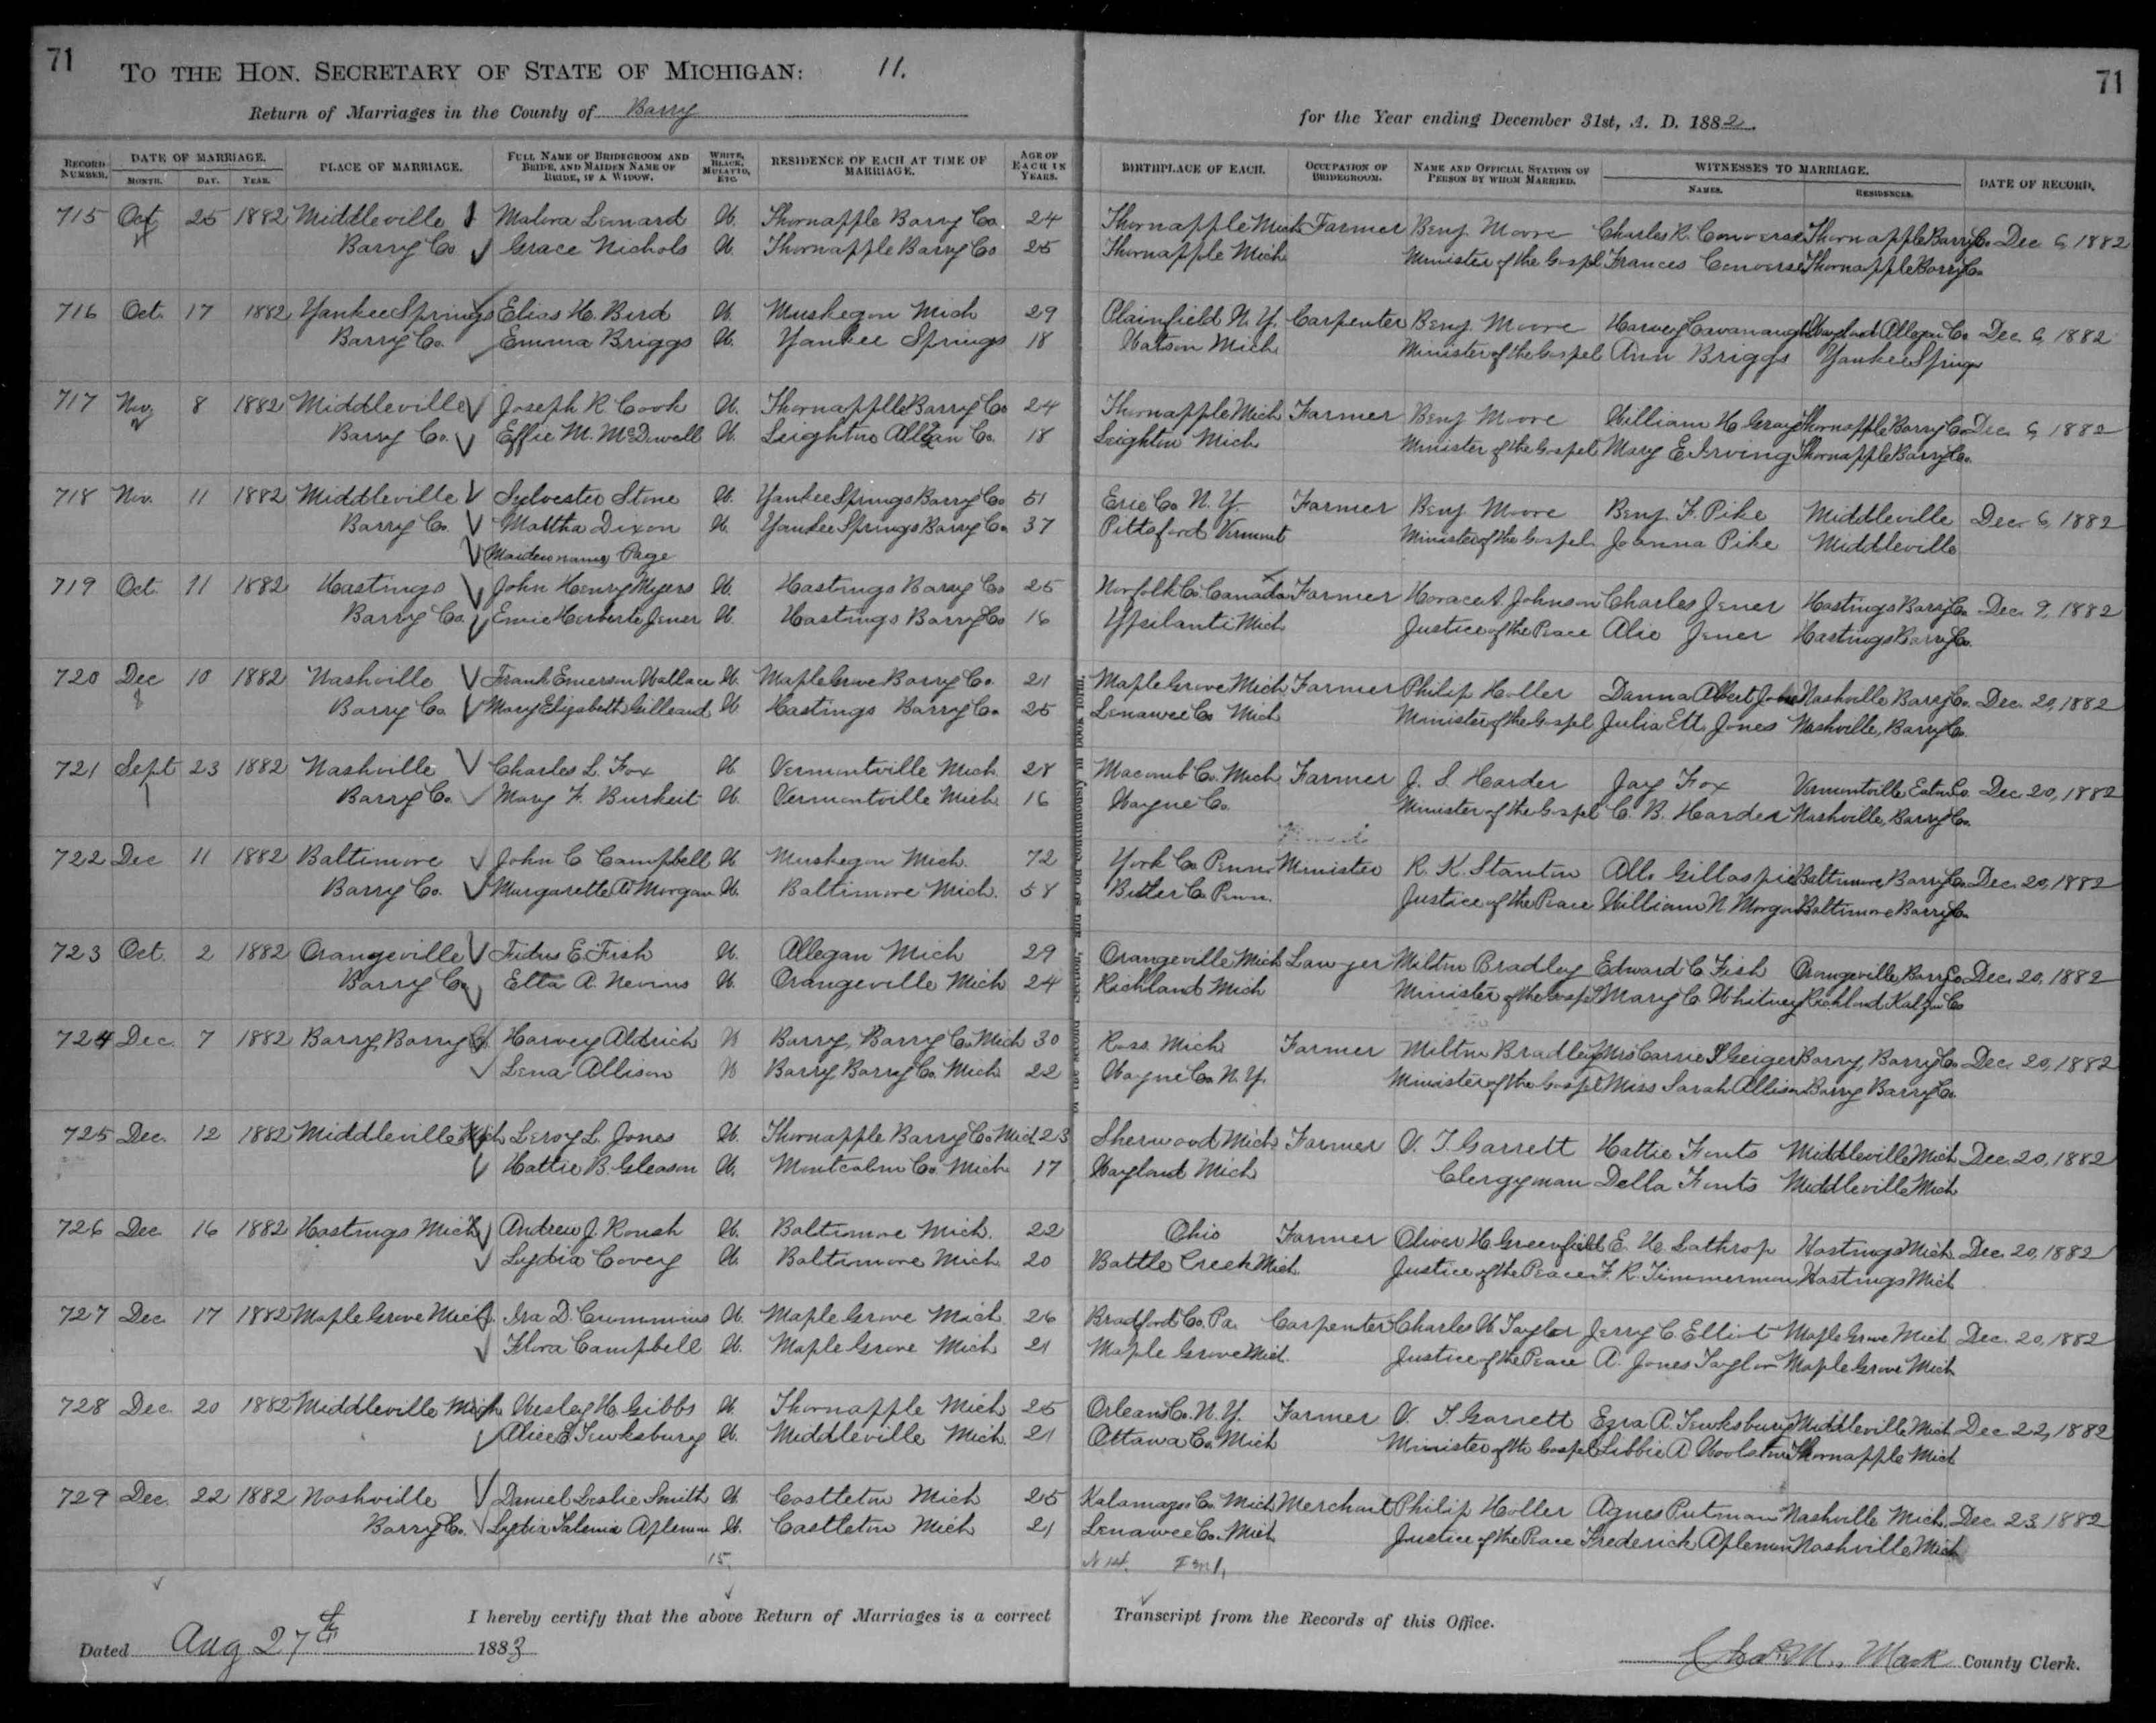 71
71
TO THE HON. SECRETARY OF STATE OF MICHIGAN: 11.
Return of Marriages in the County of Barry for the Year ending December 31st, A. D. 1882.
RECORD NUMBER. DATE OF MARRIAGE. MONTH. DAY. YEAR. PLACE OF MARRIAGE. FULL NAME OF BRIDEGROOM AND BRIDE, AND MAIDEN NAME OF BRIDE, IF A WIDOW. WHITE, BLACK, MULATTO, ETC. RESIDENCE OF EACH AT TIME OF MARRIAGE. AGE OF EACH IN YEARS. BIRTHPLACE OF EACH. OCCUPATION OF BRIDEGROOM. NAME AND OFFICIAL STATION OF PERSON BY WHOM MARRIED. WITNESSES TO MARRIAGE. NAMES. RESIDENCES. DATE OF RECORD.
715 Oct 25 1882 Middleville Malora Leonard W. Thornapple Barry Co 24 Thornapple Mich Farmer Benj. Moore Charles R. Converse Thornapple Barry Co Dec 6, 1882
Barry Co Grace Nichols W. Thornapple Barry Co 25 Thornapple Mich Minister of the Gospel Frances Converse Thornapple Barry Co
716 Oct. 17 1882 Yankee Springs Elias H. Bird W. Muskegon Mich 29 Plainfield N. Y. Carpenter Benj. Moore Harvey Cavanaugh Wayland Allegan Co Dec. 6, 1882
Barry Co. Emma Briggs W. Yankee Springs 18 Watson Mich Minister of the Gospel Ann Briggs Yankee Springs
717 Nov 8 1882 Middleville Joseph R. Cook W. Thornapplle Barry Co 24 Thornapple Mich Farmer Benj Moore William H. Gray Thornapple Barry Co Dec. 6, 1882
Barry Co. Effie M. McDowell W. Leighton Allegan Co. 18 Leighton Mich Minister of the Gospel Mary E Irving Thornapple Barry Co.
718 Nov. 11 1882 Middleville Sylvester Stone W. Yankee Springs Barry Co 51 Erie Co N. Y. Farmer Benj Moore Benj. F. Pike Middleville Dec. 6, 1882
Barry Co. Mattha Dixon W. Yankee Springs Barry Co. 37 Pittsford Vermont Minister of the Gospel Joanna Pike Middleville
Maiden name Page
719 Oct. 11 1882 Hastings John Henry Myers W. Hastings Barry Co 25 Norfolk Co. Canada Farmer Horace A. Johnson Charles Jener Hastings Barry Co. Dec. 9, 1882
Barry Co. Jener W. Hastings Barry Co 16 Ypsilanti Mich Justice of the Peace Alie Jener Hastings Barry Co.
720 Dec 10 1882 Nashville Frank Emerson Wallace W. Maple Grove Barry Co. 21 Maple Grove Mich Farmer Philip Holler Albert Nashville Barry Co. Dec. 20, 1882
Barry Co Mary Elizabeth Gilleaud W. Hastings Barry Co. 25 Lenawee Co Mich Minister of the Gospel Julia Ett Jones Nashville, Barry Co.
721 Sept 23 1882 Nashville Charles L. Fox W. Vermontville Mich. 28 Macomb Co. Mich. Farmer J. S. Harder Jay Fox Vermontville Eaton Co. Dec. 20, 1882
Barry Co. Mary F. Burkeit W. Vermontville Mich. 16 Wayne Co. Minister of the Gospel C. B. Harder Nashville, Barry Co.
722 Dec 11 1882 Baltimore John C Campbell W Muskegon Mich. 72 York Co. Penn. Minister R. K. Stanton Gillaspie Baltimore, Barry Co. Dec. 20, 1882
Barry Co. Margarette Morgan W. Baltimore Mich. 58 Butler Co Penn. Justice of the Peace William N. Morgan Baltimore Barry Co.
723 Oct. 2 1882 Orangeville Fidus E. Fish W. Allegan Mich 29 Orangeville Mich Lawyer Milton Bradley Edward C. Fish Orangeville, Barry Co. Dec. 20, 1882
Barry Co. Etta A. Nevins W. Orangeville Mich 24 Richland Mich Minister of the Gospel Mary C. Whitney Richland Kalzoo Co
724 Dec. 7 1882 Barry, Barry Co Harvey Aldrich W Barry, Barry Co Mich 30 Ross Mich Farmer Milton Bradley Mrs Carrie S Geiger Barry, Barry Co Dec. 20, 1882
Lena Allison W Barry Barry Co. Mich 22 Wayne Co. N. Y. Minister of the Gospel Miss Sarah Allison Barry Barry Co.
725 Dec. 12 1882 Middleville Mich Leroy L. Jones W. Thornapple Barry Co Mich 23 Sherwood Mich. Farmer V. T. Garrett Hattie Fouts Middleville Mich Dec. 20, 1882
Hattie B. Gleason W. Montcalm Co. Mich 17 Wayland Mich Clergyman Della Fouts Middleville Mich
726 Dec. 16 1882 Hastings Mich Andrew J. Roush W. Baltimore Mich. 22 Ohio Farmer Oliver H. Greenfield E. H. Lathrop Hastings Mich. Dec. 20, 1882
Lydia Covey W. Baltimore Mich 20 Battle Creek Mich. Justice of the Peace F. R. Timmerman Hastings Mich
727 Dec. 17 1882 Maple Grove Mich. Ira D. Cummins W. Maple Grove Mich. 26 Bradford Co. Pa. Carpenter Charles W. Taylor Jerry C. Elliot Maple Grove Mich. Dec. 20, 1882
Flora Campbell W. Maple Grove Mich 21 Maple Grove Mich. Justice of the Peace A. Jones Taylor Maple Grove Mich
728 Dec. 20 1882 Middleville Mich Wesley H. Gibbs W. Thornapple Mich 25 Orleans Co. N. Y. Farmer V. T. Garrett Ezra A. Tewksbury Middleville Mich Dec 22, 1882
Alice E Tewksbury W. Middleville Mich. 21 Ottawa Co. Mich Minister of the Gospel Libbie A Thornapple Mich
729 Dec. 22 1882 Nashville Daniel Leslie Smith W. Castleton Mich 25 Kalamazoo Co. Mich. Merchant Philip Holler Agnes Putman Nashville Mich. Dec. 23, 1882
Barry Co. Lydia Aplemun W. Castleton Mich 21 Lenawee Co. Mich. Justice of the Peace Frederick Aplemun Nashville Mich
15.
I hereby certify that the above Return of Marriages is a correct Transcript from the Records of this Office.
Dated Aug 27th 1883
Mack County Clerk.